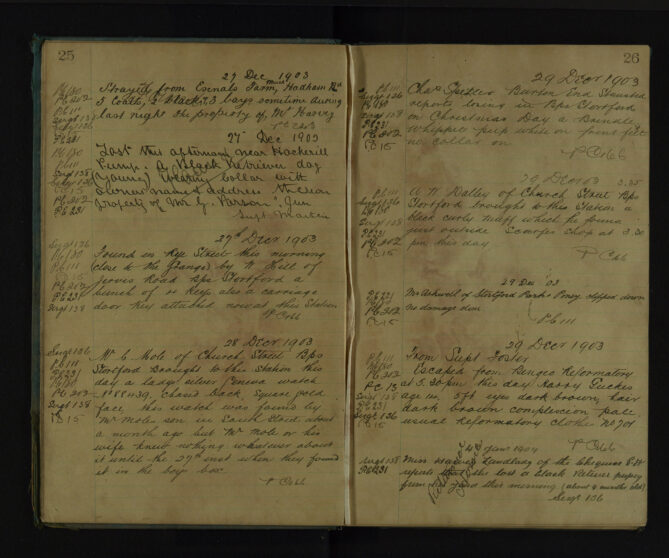 25
27 Dec 1903
Strayed from Exnals Farm, Hadham Rd
5 Coalts, 2 blacks, 3 bays sometime during
last night the property of Mr Harvey
27th Dec 1903
Lost this afternoon near Hockerill
Pump. A Black Retriever dog
(young) wearing collar with
owners name & address the
property of Mr G. Parson. Jun
Supt. Martin
27th Decr 1903
Found in Rye Street this morning
close to the Grange by W. Hill of
Jervis Road Bps Stortford a
bunch of 4 keys also a carriage
door key attached now at this Station
P Cobb
28 Decr 1903
Mr C Mole of Church Street Bps
Stortford brought to this Station this
day a ladys silver Geneva watch
chased back, square gold
face this watch was found by
Mr Moles son in South Street about
a month ago but Mr Mole or his
wife knew nothing whatever about
it until the 27th inst when they found
it in the boys box
P Cobb
26
29 Decr 1903
Chas Spiller Burton End Stansted
reports losing in Bps Stortford
on Christmas Day a Brindle
Whippet pup white on front feet
no collar on
P Cobb
29 Decr 03 3.35
A W Dalley of Church Street Bps
Stortford brought to this Station a
black curly muff which he found
just outside Scarfes shop at 3.30
pm this day
P Cobb
29 Dec 03
Mr Ashwell of Stortford Park. Poney slipped down
no damage done
Pc 111
29 Decr 1903
From Supt Foster
Escaped from Bengeo Reformatory
at 5.30 pm this day Harry Tucker
age 5ft eyes dark brown, hair
dark brown complexion pale
usual reformatory clothes No 701
P Cobb
4th Jany 1904
Miss Landlady of the Chequers P.H
reports that she lost a black retriever puppy
from this morning (about 4 months old)
Sergt 136